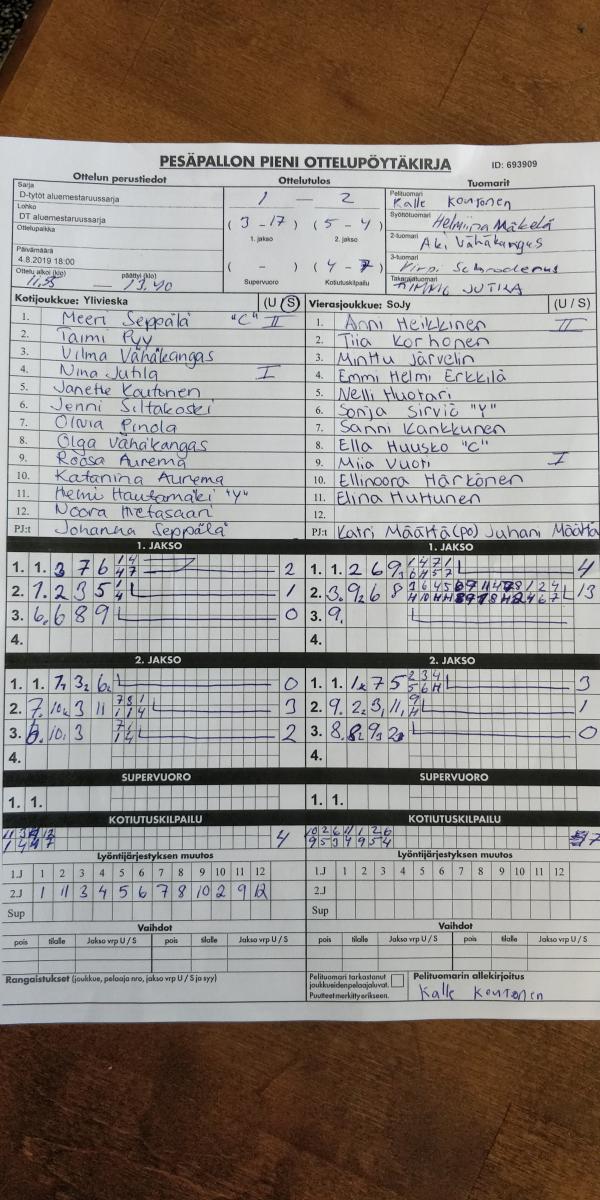 PESÄPALLON PIENI OTTELUPÖYTÄKIRJA ID: 693909
Ottelun perustiedot Ottelutulos Tuomarit
Sarja
D-tytöt aluemestaruussarja
Lohko
DT aluemestaruussarja
Ottelupaikka
Päivämäärä
4.8.2019 18:00
Ottelu alkoi (klo) päättyi (klo)
— 13.40
1 — 2
( 3 - 17 ) ( 5 - 4 )
1. jakso 2. jakso
( - ) ( 4 - 7 )
Supervuoro Kotiutuskilpailu
Pelituomari
Kalle Koutonen
Syöttötuomari
Helmiina Mäkelä
2-tuomari
Aki Vähäkangas
3-tuomari
Takarajatuomari
JUTILA
Kotijoukkue: Ylivieska (U / S)
1. Meeri Seppälä "C" II
2. Taimi Pyy
3. Vilma Vähäkangas
4. Nina Jutila I
5. Janette Koutonen
6. Jenni Siltakoski
7. Olivia Pinola
8. Olga Vähäkangas
9. Roosa Aurema
10. Katariina Aurema
11. Helmi Hautamäki "Y"
12. Noora Metasaari
PJ:t Johanna Seppälä
Vierasjoukkue: SoJy (U / S)
1. Anni Heikkinen II
2. Tiia Korhonen
3. Minttu Järvelin
4. Emmi Helmi Erkkilä
5. Nelli Huotari
6. Sonja Sirviö "Y"
7. Sanni Kankkunen
8. Ella Huusko "C"
9. Miia Vuori I
10. Ellinoora Härkönen
11. Elina Huttunen
12.
PJ:t Katri Määttä (po) Juhani Määttä
1. JAKSO
1. 1. 3 7 6 2
2. 1. 2 3 5 1
3. 6. 6 8 9 0
4.
1. JAKSO
1. 1. 2 6 9 4
2. 3. 9 6 8 13
3. 9.
4.
2. JAKSO
1. 1. 0
2. 7. 10. 3 11 3
3. 10. 3 2
4.
2. JAKSO
1. 1. 7 5 3
2. 9. 2. 3. 11. 1
3. 8. 0
4.
SUPERVUORO
1. 1.
SUPERVUORO
1. 1.
KOTIUTUSKILPAILU
4
KOTIUTUSKILPAILU
10 2 6 11 1 2 6
9 5 3 4 9 5 4
7
Lyöntijärjestyksen muutos
1.J 1 2 3 4 5 6 7 8 9 10 11 12
2.J 1 11 3 4 5 6 7 8 10 2 9 12
Sup
Lyöntijärjestyksen muutos
1.J 1 2 3 4 5 6 7 8 9 10 11 12
2.J
Sup
Vaihdot
pois tilalle Jakso vrp U / S pois tilalle Jakso vrp U / S
Vaihdot
pois tilalle Jakso vrp U / S pois tilalle Jakso vrp U / S
Rangaistukset (joukkue, pelaaja nro, jakso vrp U / S ja syy)
Pelituomari tarkastanut
joukkueiden pelaajaluvat.
Puutteet merkitty erikseen.
Pelituomarin allekirjoitus
Kalle Koutonen